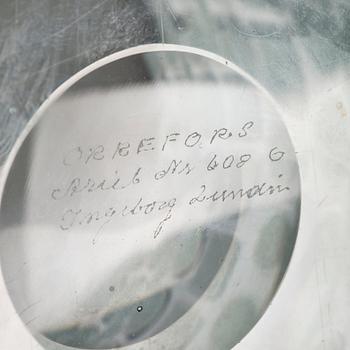 ORREFORS
Ariel Nr 608 G
Ingeborg Lundin